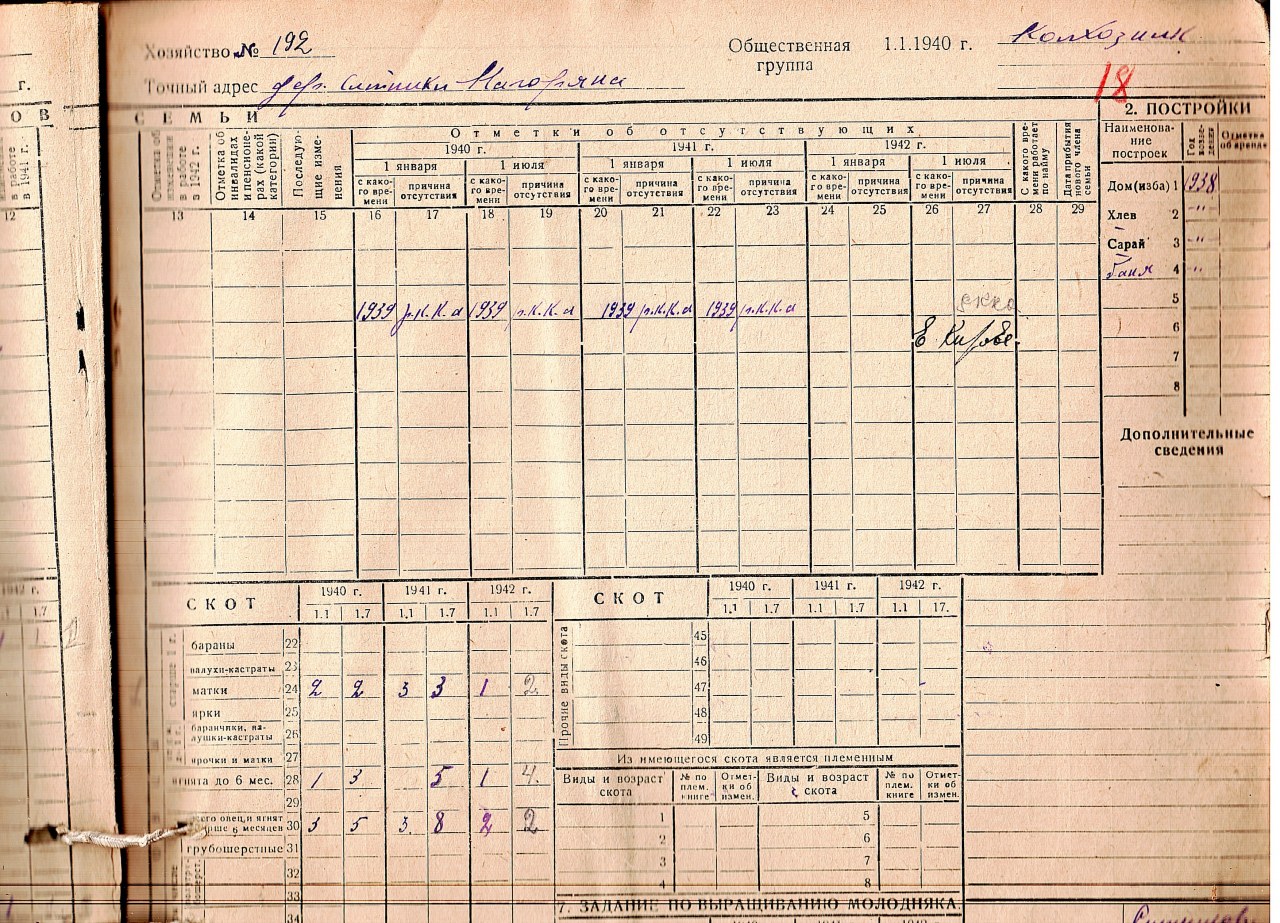 Хозяйство № 192
Общественная группа 1.1.1940 г. Колхозник
Точный адрес дер.
18
г.
О В
С Е М Ь И
2. ПОСТРОЙКИ
в работе в 1941 г.
в работе в 1942 г.
Отметка об инвалидах и пенсионерах (какой категории)
Последующие изменения
Отметки об отсутствующих
1940 г. 1941 г. 1942 г.
1 января 1 июля 1 января 1 июля 1 января 1 июля
с како-го вре-мени причина отсутствия с како-го вре-мени причина отсутствия с како-го вре-мени причина отсутствия с како-го вре-мени причина отсутствия с како-го вре-мени причина отсутствия с како-го вре-мени причина отсутствия
С какого времени работает по найму
Дата прибытия нового члена семьи
12 13 14 15 16 17 18 19 20 21 22 23 24 25 26 27 28 29
1939 р.К.К.а 1939 р.К.К.а 1939 р.К.К.а 1939 р.К.К.а
Наименова-
ние
построек
Год возве-дения
Отметка об аренде
Дом(изба) 1 1938
Хлев 2 -"-
Сарай 3 -"-
баня 4 -"-
5
6
7
8
Дополнительные
сведения
СКОТ 1940 г. 1941 г. 1942 г.
1.1 1.7 1.1 1.7 1.1 1.7
бараны 22
валухи-кастраты 23
матки 24 2 2 3 3 1 2
ярки 25
баранчики, ва-
лушки-кастраты 26
ярочки и матки 27
ягнята до 6 мес. 28 1 3 5 1 4
29
овец и ягнят
6 месяцев 30 3 5 3 8 2 2
грубошерстные 31
32
33
34
СКОТ 1940 г. 1941 г. 1942 г.
1.1 1.7 1.1 1.7 1.1 17.
Прочие виды скота
45
46
47
48
49
Из имеющегося скота является племенным
Виды и возраст скота № по плем. книге Отмет-ки об измен. Виды и возраст скота № по плем. книге Отмет-ки об измен.
1 5
2 6
3 7
4 8
7. ЗАДАНИЕ ПО ВЫРАЩИВАНИЮ МОЛОДНЯКА